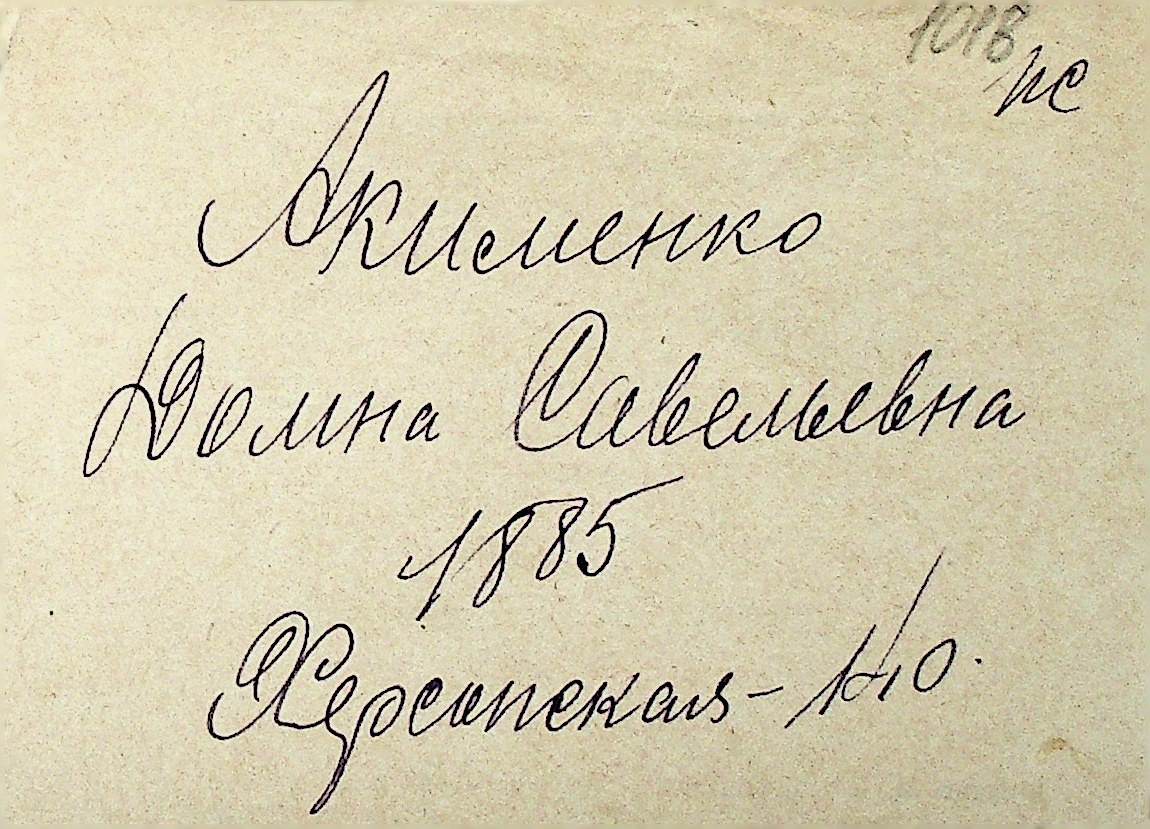 101в
пс
Акименко
Домна Савельевна
1885
Херсонская - 140.